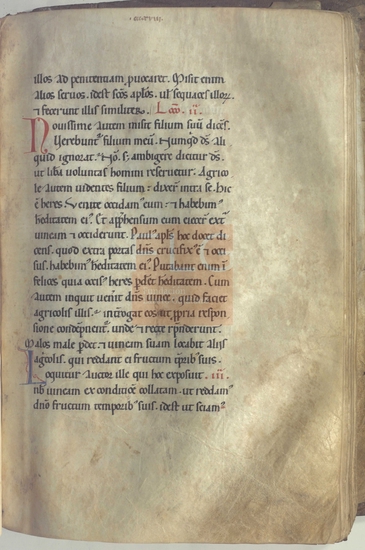 illos ad penitentiam puocaret. Misit enim
alios seruos. idest scōs aplōs. ul' sequaces illorꝫ.
⁊ fecerunt illis similiter. Lc̄o. ii.
Nouissime autem misit filium suū dicēs.
Uerebunt' filium meū. Numqͥd d̄s ali
quid ignorat. s; ambigere dicitur d̄s.
ut liba uoluntas homini reseruetur. Agrico
le autem uidentes filium: dixer̄t intra se. Hic
ē heres. Uenite occidam' eum: ⁊ habebim'
hereditatem ei'. Et apphensum eum eiecer̄t ext̄
uineam ⁊ occiderunt. Paul' apls' hoc docet di
cens. quod extra portas dn̄s crucifix' ē ⁊ occi
sus. habebim' hereditatem ei'. Putabant enim
felices quia occis' heres hereditatem. Cum
autem inquit uenerit dn̄s uinee. quid faciet
agricolis illis. int̄rogat ppria respon
sione unde ⁊ recte rn̄derunt.
Malos male pdet: ⁊ uineam suam locabit aliis
agͥcolis. qui reddant ei fructum tp̄rib' suis.
Loquitur auctor ille qui hoc exposuit. iii.
nb' uineam ex conditiōe collatam. ut reddam'
dn̄o fructum temporib' suis. idest ut sciam'